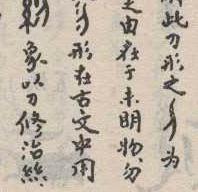 此刀形之㇉为
之由在于未明物勿
形在古文中用
象以刀修治丝